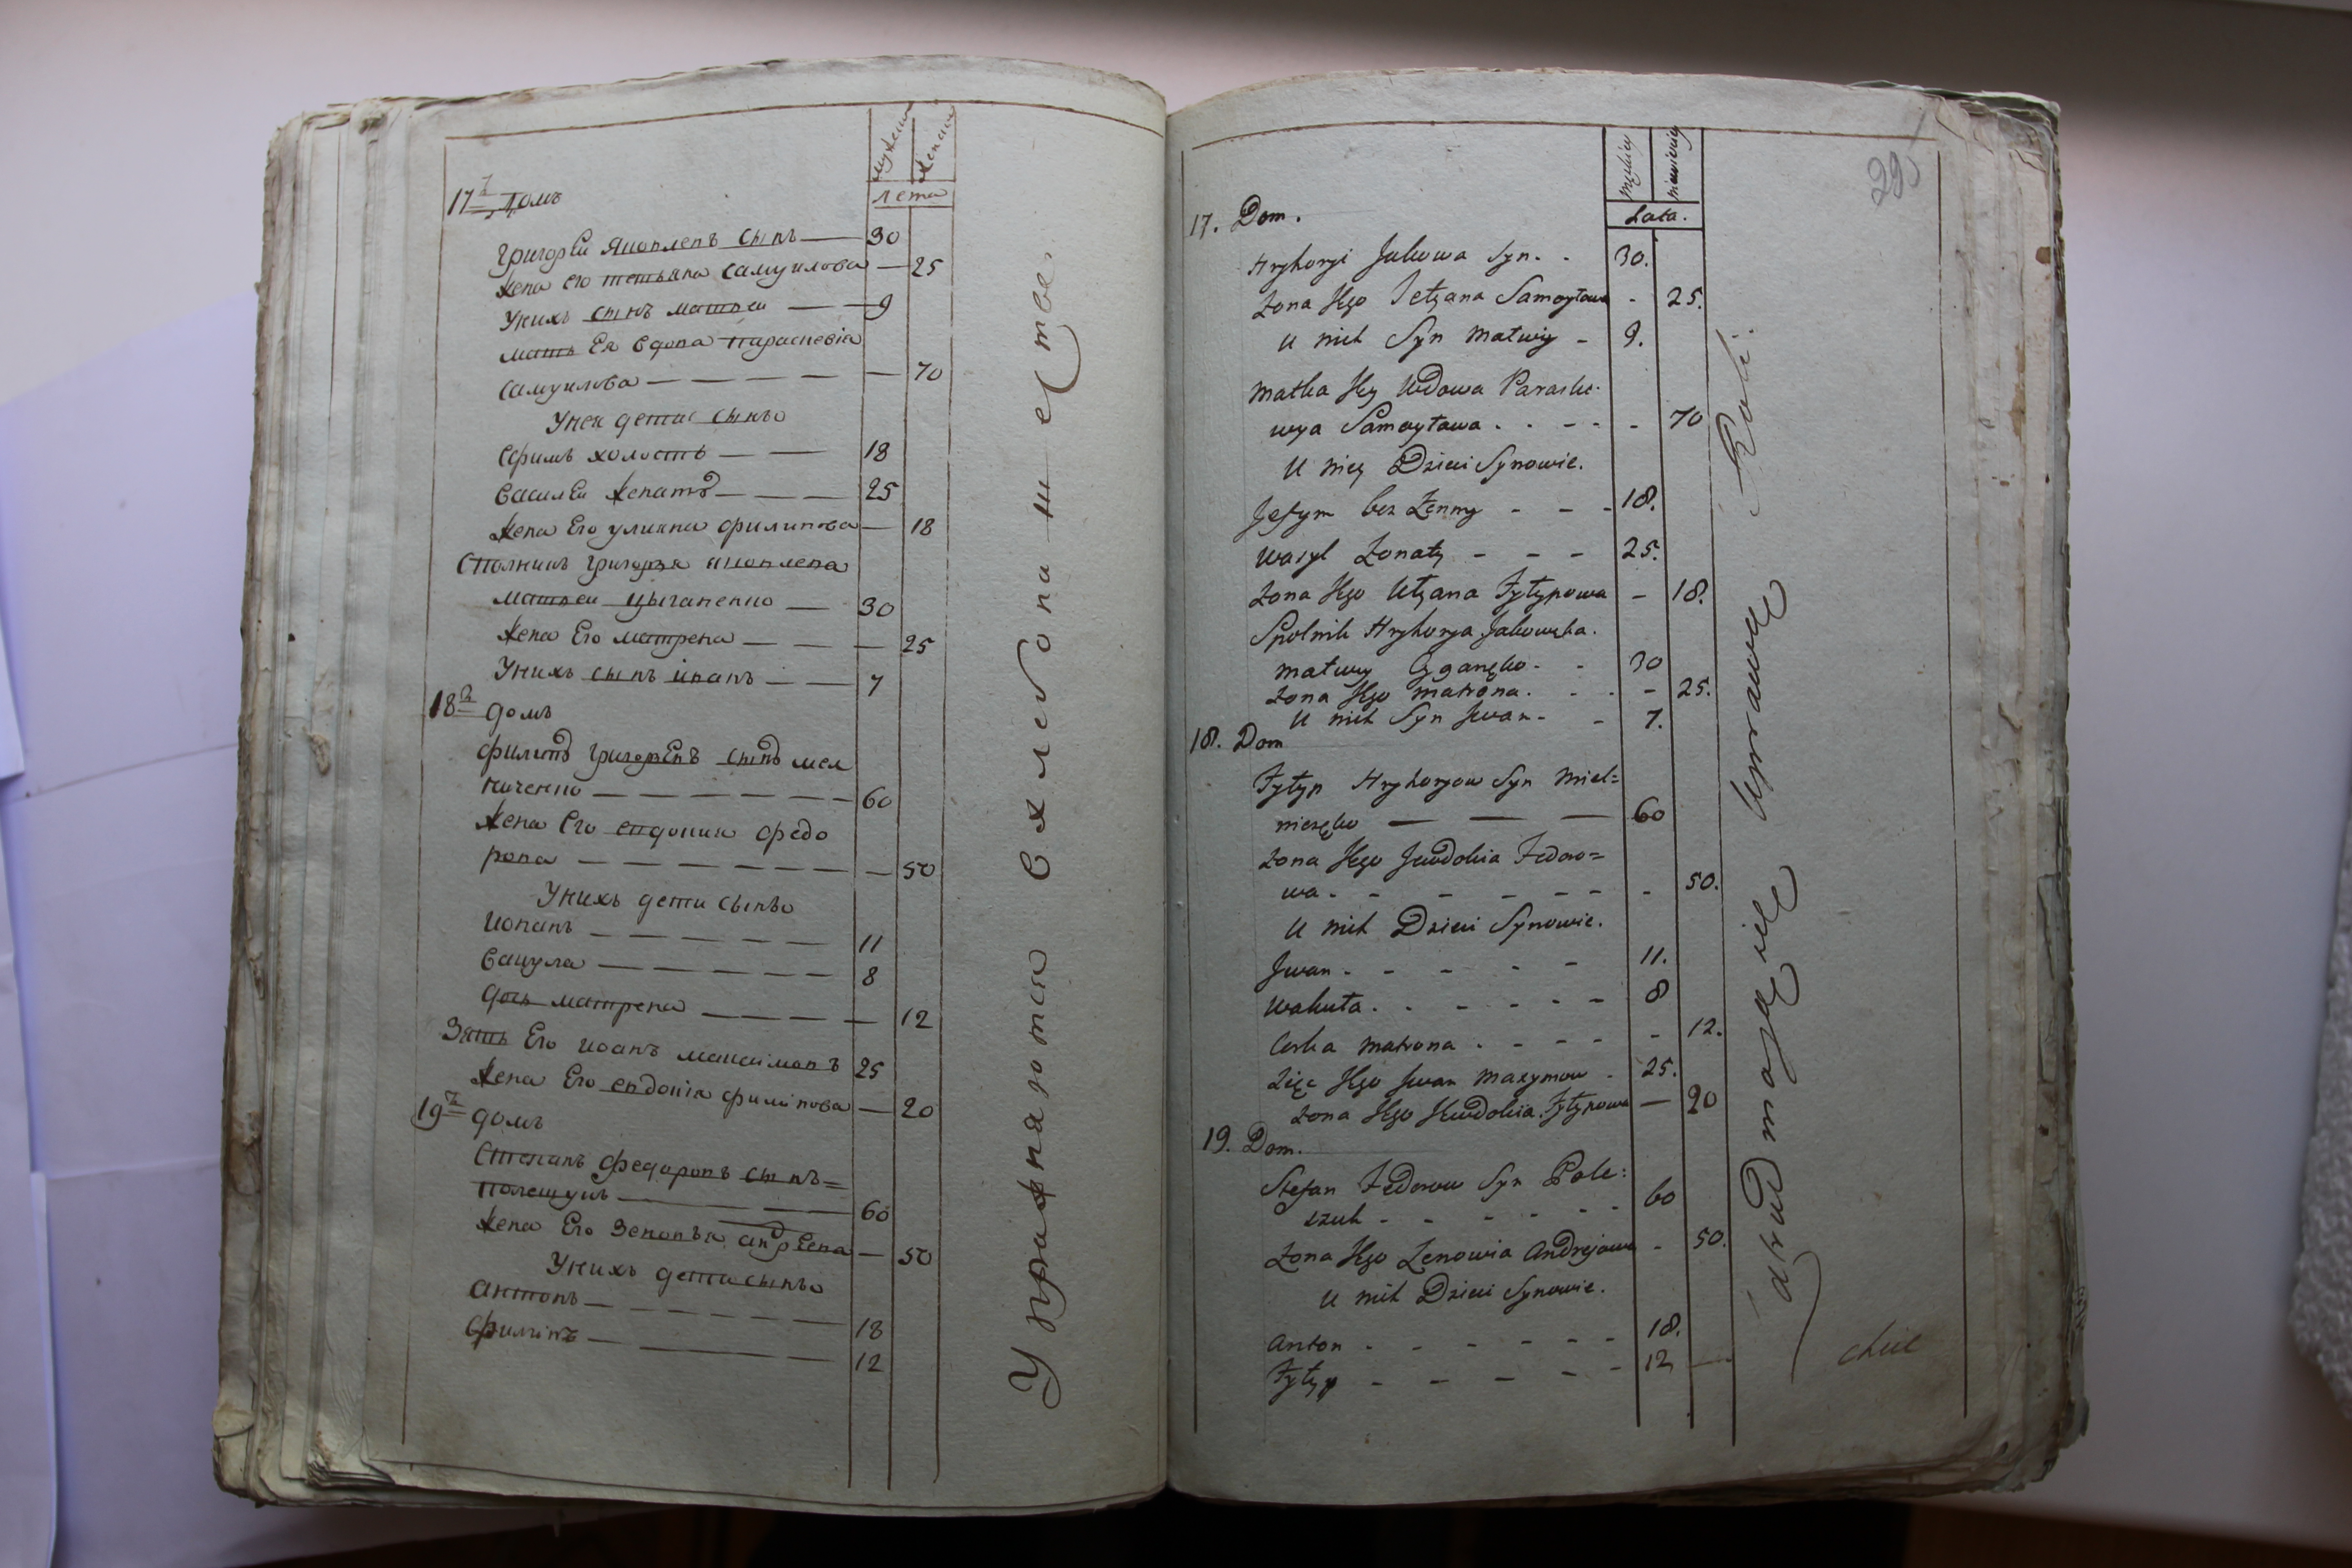 мужеск женск
лета
17й домъ
григореи яковлевъ сынъ — 30
жена его тетьяна самуилова — 25
Унихъ сынъ матвеи — 9
мать Ея вдова параскевіа
самуилова — — — — — 70
Унея дети сынъв
Ефимъ холостъ — — 18
василеи женатъ — — — 25
жена Его улияна филипова — 18
Столникъ григоръя яковлева
матвеи цыганенко — 30
жена Его матрена — — — 25
Унихъ сынъ іванъ — — 7
18й домъ
филипъ григорЕвъ сынъ мел
ниченко — — — — — — 60
жена Его евдокия федо
рова — — — — — — — 50
Унихъ дети сынъв
иованъ — — — — — — 11
вакула — — — — — — 8
дочь матрена — — — — — 12
Зять Его иоанъ максимовъ 25
жена Его евдокіа филипова — 20
19й домъ
Степанъ федоровъ сынъ=
полещукъ — — — 60
жена Его Зеновъя андрЕева — 50
Унихъ дети сынъв
антонъ — — — — — — 18
филипъ — — — — 12
Упражняются вхлебопашестве.
29
męskiey niewieściey
Lata.
17. Dom.
Hryhoryi Jakowa Syn. - 30.
Zona Jego Tetyana Samoyłowa - 25.
U nich Syn Matwiy - 9.
Matka Jey Wdowa Paraske-
wya Samoyłowa . . - - - 70
U niey Dzieci Synowie.
Jefym bez Zenny - - - 18.
Wasyl Zonaty - - - 25.
Zona Jego Ulyana Fyłypowa - 18.
Spolnik Hryhorya Jakowska.
Matwey Cyganęko - - 30
Zona Jego Matrona. - - - 25.
U nich Syn Jwan - - 7.
18. Dom
Fyłyp Hryhoryow Syn Miel=
niczęko — — — 60
Zona Jego Jewdokia Fedoro=
wa - - - - - - - 50.
U nich Dzieci Synowie.
Jwan - - - - - 11.
Wakuła. - - - - - 8
Corka Matrona . - - - - - 12.
Zięc Jego Jwan Maxymow - 25.
Zona Jego Jewdokia Fyłypowa — 20
19. Dom.
Stefan Fedorow Syn Pole:
szuk - - - - - - 60
Zona Jego Zenowia Andrejowa - 50.
U nich Dzieci Synowie.
Anton - - - - - - 18.
Fyłyp - - - - - 12
Zatrudniaią się Uprawą Roli.